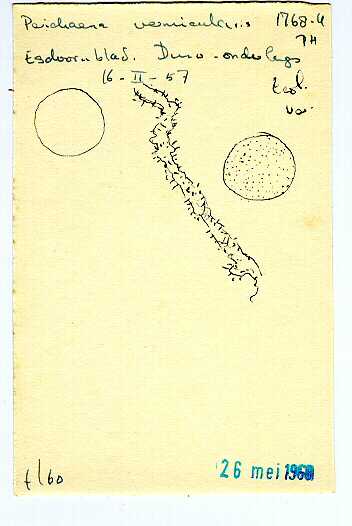 Perichaena vermicularis 1768-4
Esdoornblad. Duno-onderlegs
16-II-57
Ecol.
var.
t/60
26 mei 1960